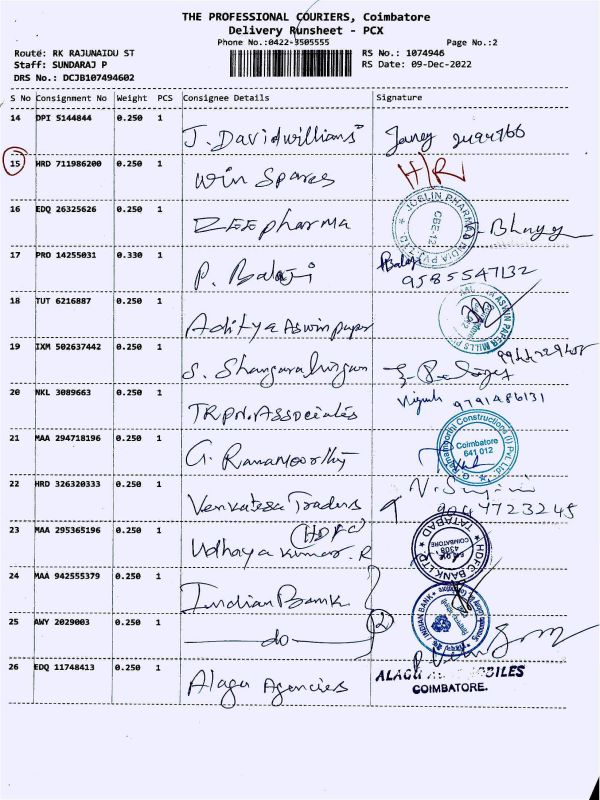 THE PROFESSIONAL COURIERS, Coimbatore
Delivery Runsheet - PCX
Phone No.:0422-3505555 Page No.:2
Route: RK RAJUNAIDU ST RS No.: 1074946
Staff: SUNDARAJ P RS Date: 09-Dec-2022
DRS No.: DCJB107494602
S No Consignment No Weight PCS Consignee Details Signature
14 DPI 5144844 0.250 1 J. Davidwillians
15 HRD 711986200 0.250 1 Win Spares H/R
16 EDQ 26325626 0.250 1 ZEE pharma
JOSLIN PHARMA INDIA PVT. LTD. CBE-12
17 PRO 14255031 0.330 1 P. Balaji Balaji
9585547132
18 TUT 6216887 0.250 1 Aditya Aswin paper
ASWIN PAPER MILLS
19 IXM 502637442 0.250 1 S.
20 NKL 3089663 0.250 1 TRPN. Associates 9791486131
21 MAA 294718196 0.250 1 G. Ramamoorthy
G. Ramamoorthi Constructions (I) Pvt. Ltd. Coimbatore 641 012
22 HRD 326320333 0.250 1 Venkatesa Traders
9047723245
23 MAA 295365196 0.250 1 Udhaya Kumar. R (HDFC)
HDFC BANK LTD. TATABAD COIMBATORE
24 MAA 942555379 0.250 1 Indian Bank
INDIAN BANK
25 AWY 2029003 0.250 1 do 2
26 EDQ 11748413 0.250 1 Alagu Agencies
ALAGU
COIMBATORE.